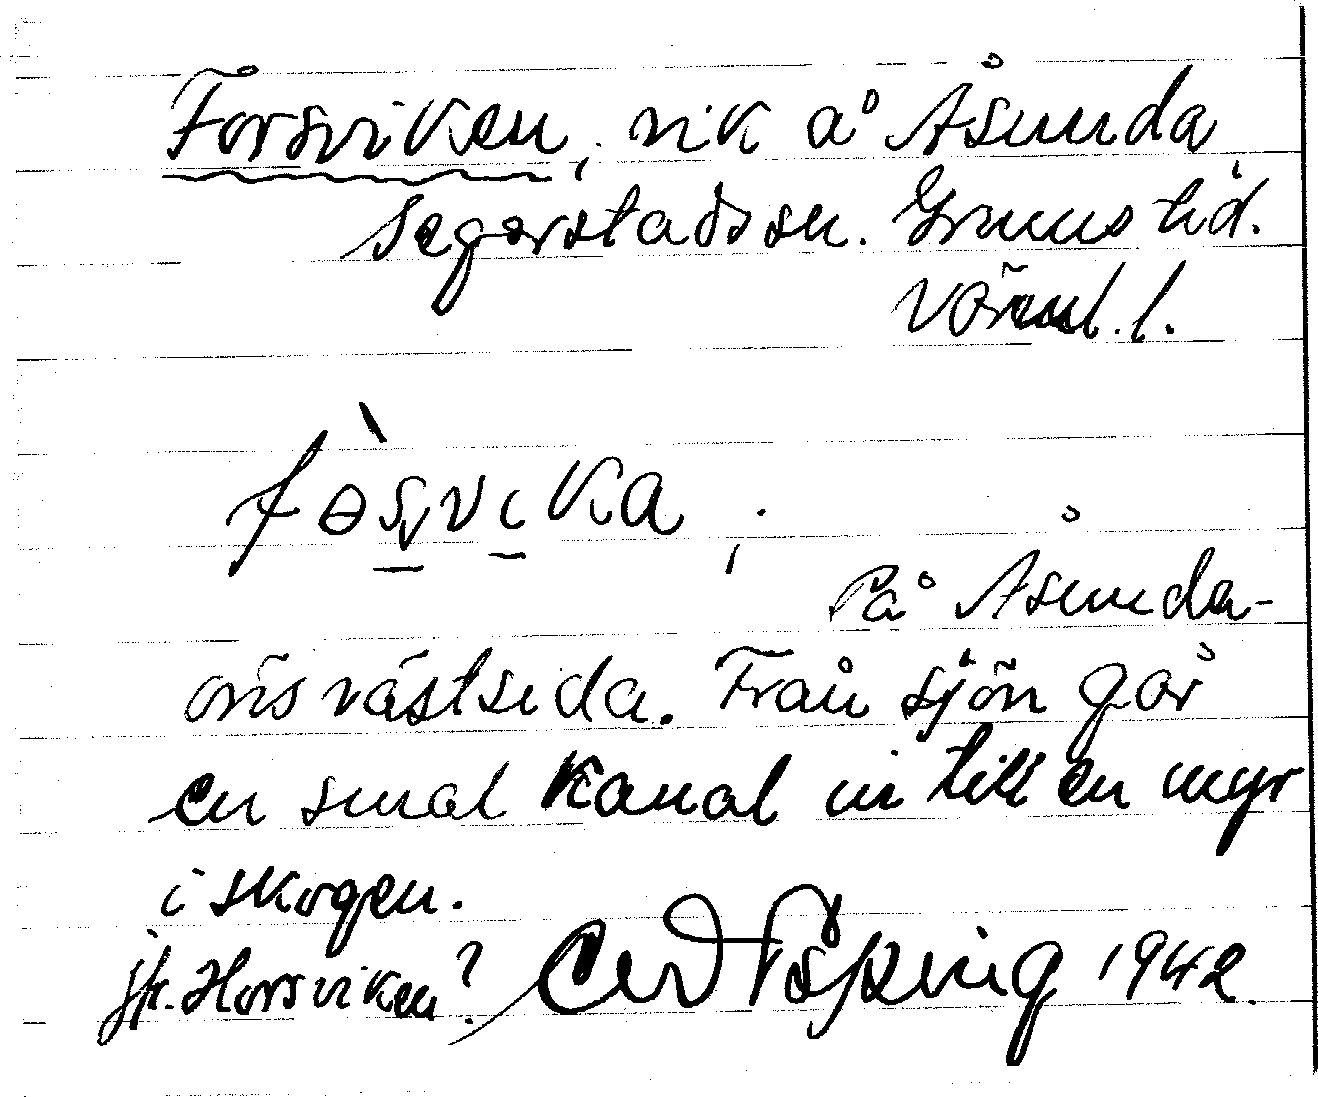 Forsviken, vik å Åsunda
Segerstads sn. Grums hd.
Värml. l.
fɵ̀ʂvɩka,
På Åsunda-
öns västsida. Från sjön går
en smal kanal in till en myr
i skogen.
jfr. Horsviken? 1942.